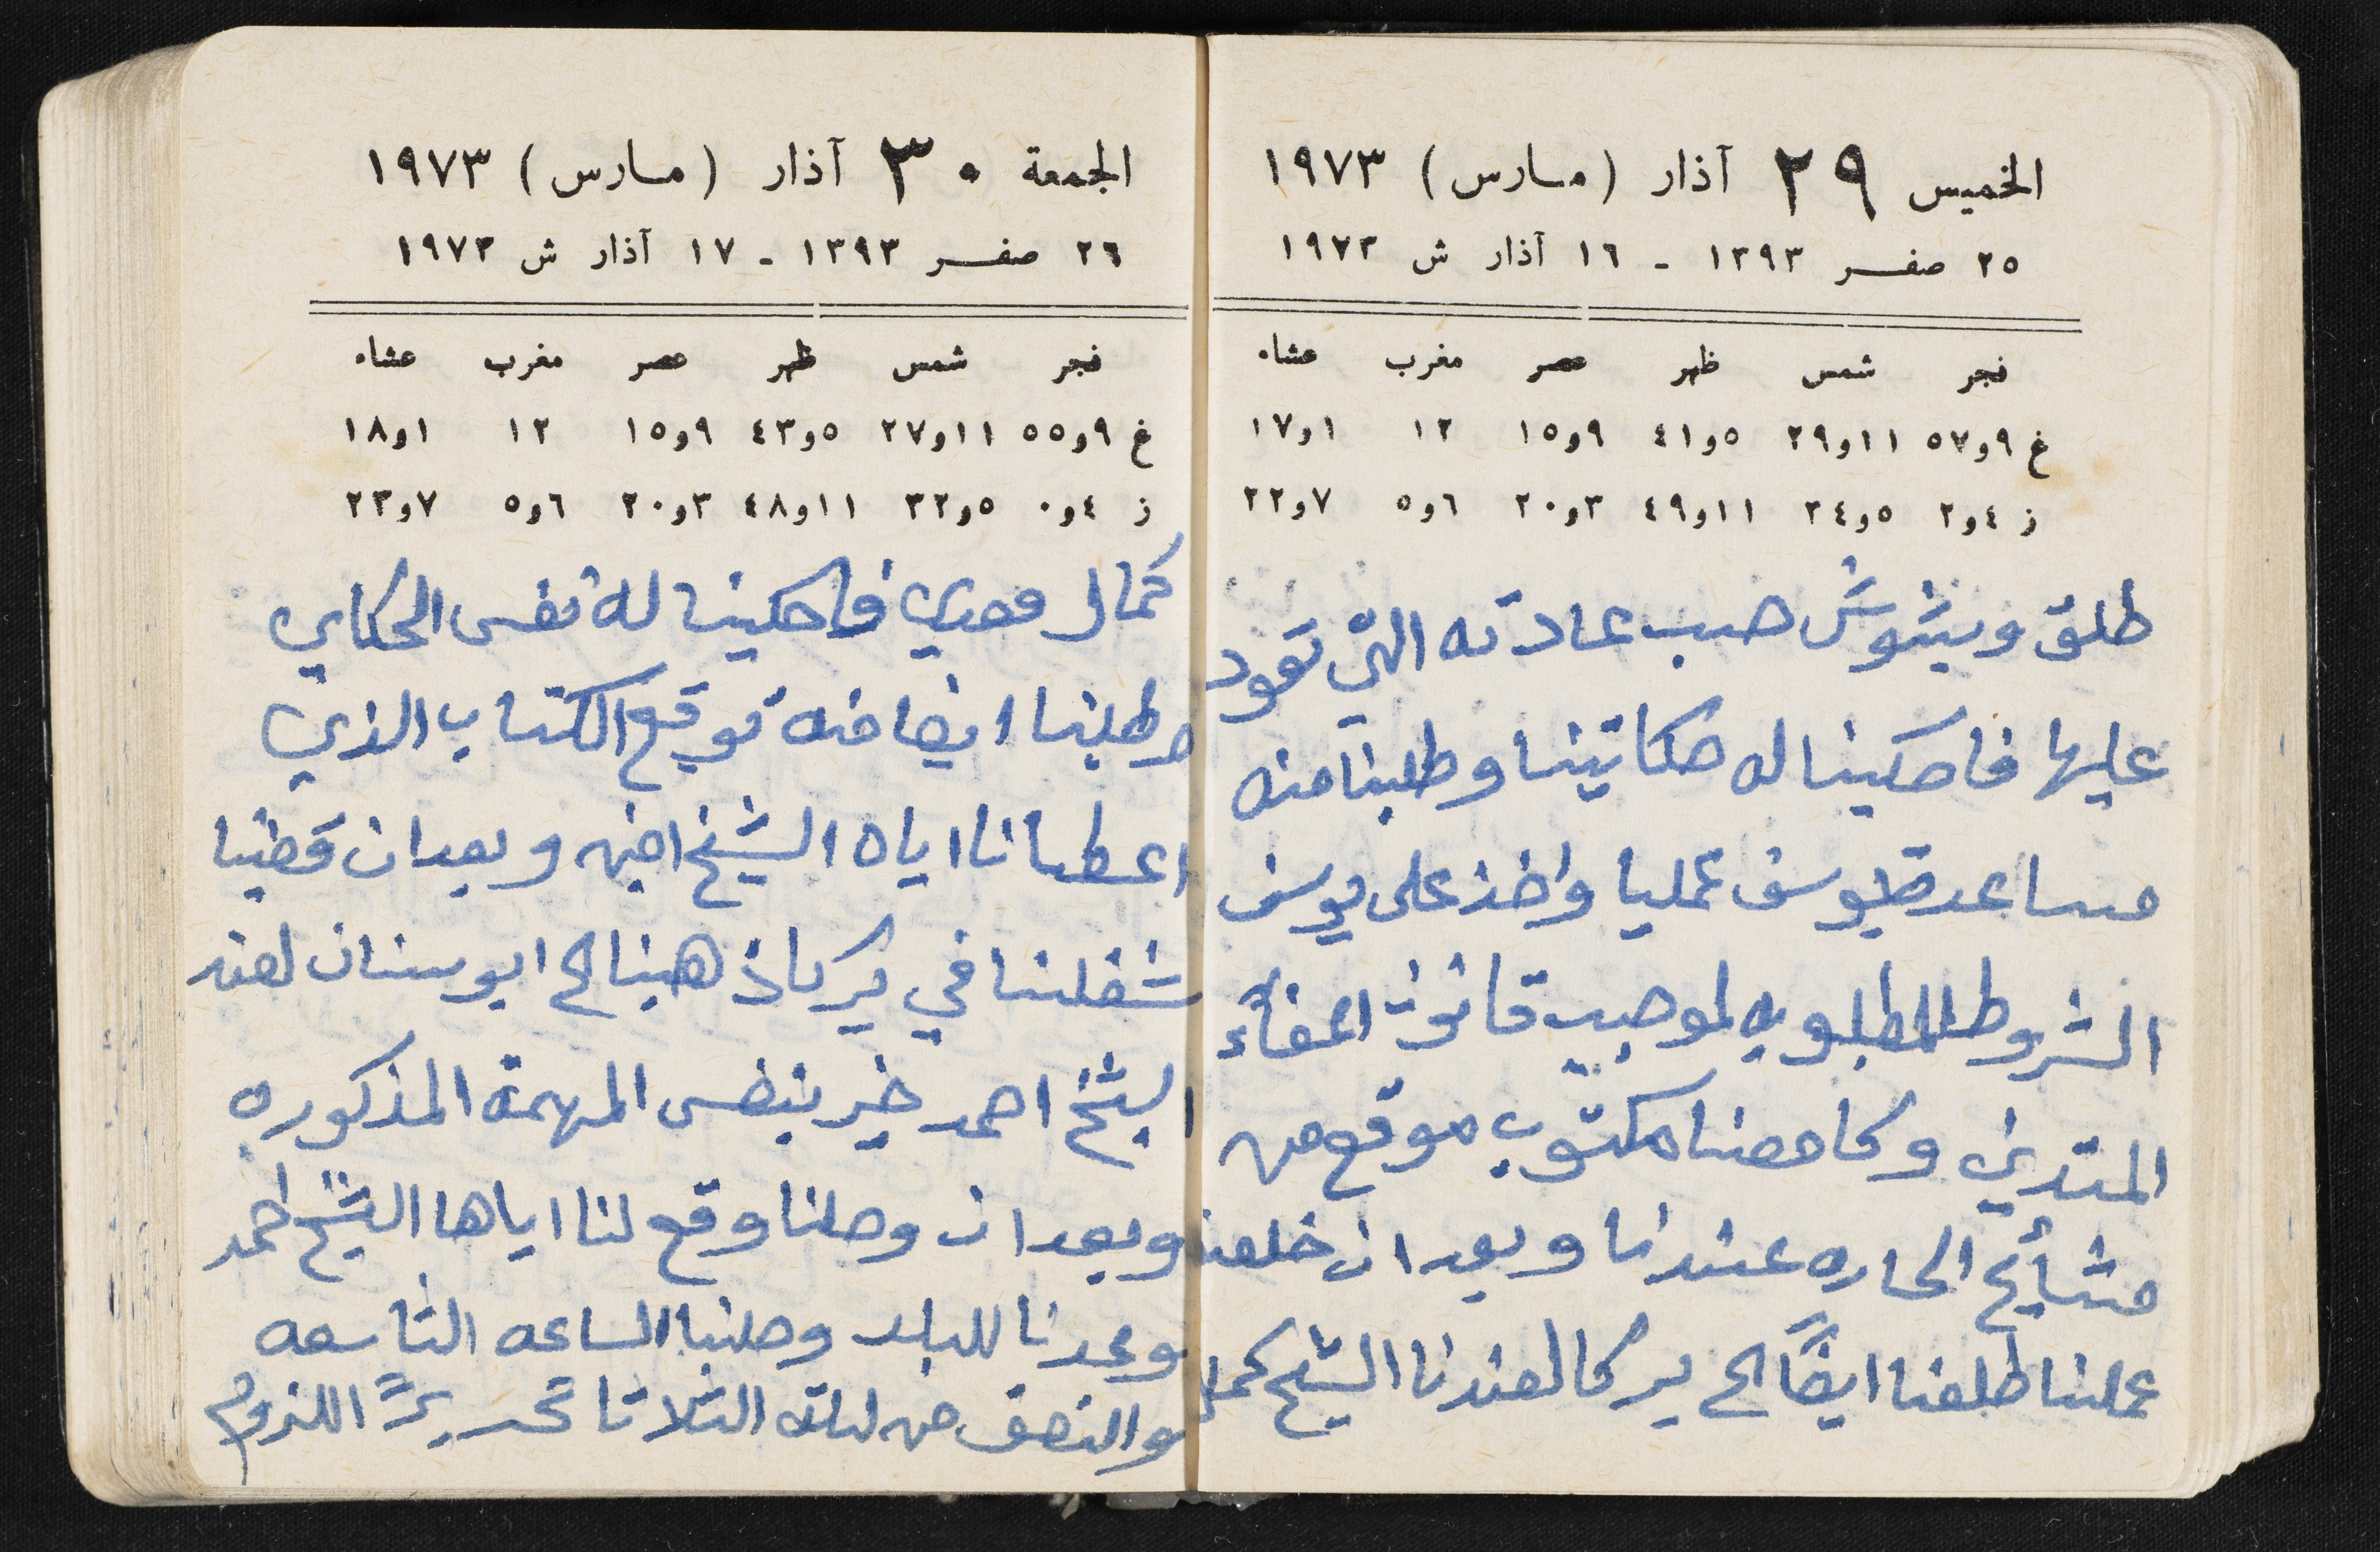 الخميس ٢٩ آذار (مارس) ١٩٧٣
٢٥ صفر ١٣٩٣ - ١٦ آذار ش ١٩٧٣
فجر شمس ظهر عصر مغرب عشاء
غ ٩و٥٧ ١١و٢٩ ٥و٤١ ٩و١٥ ١٢ ١و١٧
ز ٤و٢ ٥و٣٤ ١١و٤٩ ٣و٢٠ ٦و٥ ٧و٢٢
طلق وبشوش حسب عادته التي تعود
عليها فاحكينا له حكاتينا وطلبنا منه
مساعدة يوسف عمليا واخذ على يوسف
الشروط المطلوبه لموجب قانون اعفاء
المتدني وكا معنا مكتوب موقع من
مشأيخ الحاره عندنا وبعد ان خلصنا
عملنا طلعنا ايضاً الى يركا لعندنا الشيخ كمال
الجمعة ٣٠ آذار (مارس) ١٩٧٣
٢٦ صفر ١٣٩٣ - ١٧ آذار ش ١٩٧٣
فجر شمس ظهر عصر مغرب عشاء
غ ٩و٥٥ ١١و٢٧ ٥و٤٣ ٩و١٥ ١٢ ١و١٨
ز ٤و٠ ٥و٣٢ ١١و٤٨ ٣و٢٠ ٦و٥ ٧و٢٣
كمال معدي فاحكينا له نفس الحكاي
وطلبنا ايضا منه توقع الكتاب الذي
اعطانا اياه الشيخ امين وبعد ان قضينا
شغلنا في يركا ذهبنا الى ابو سنان لعند
الشيخ احمد خير بنفس المهمة المذكوره
وبعد ان وصلنا وقع لنا اياها الشيخ احمد
وعدنا للبلد وصلنا الساعه التاسعه
والنصف من ليلة الثلاثا تحريرً اللزوم